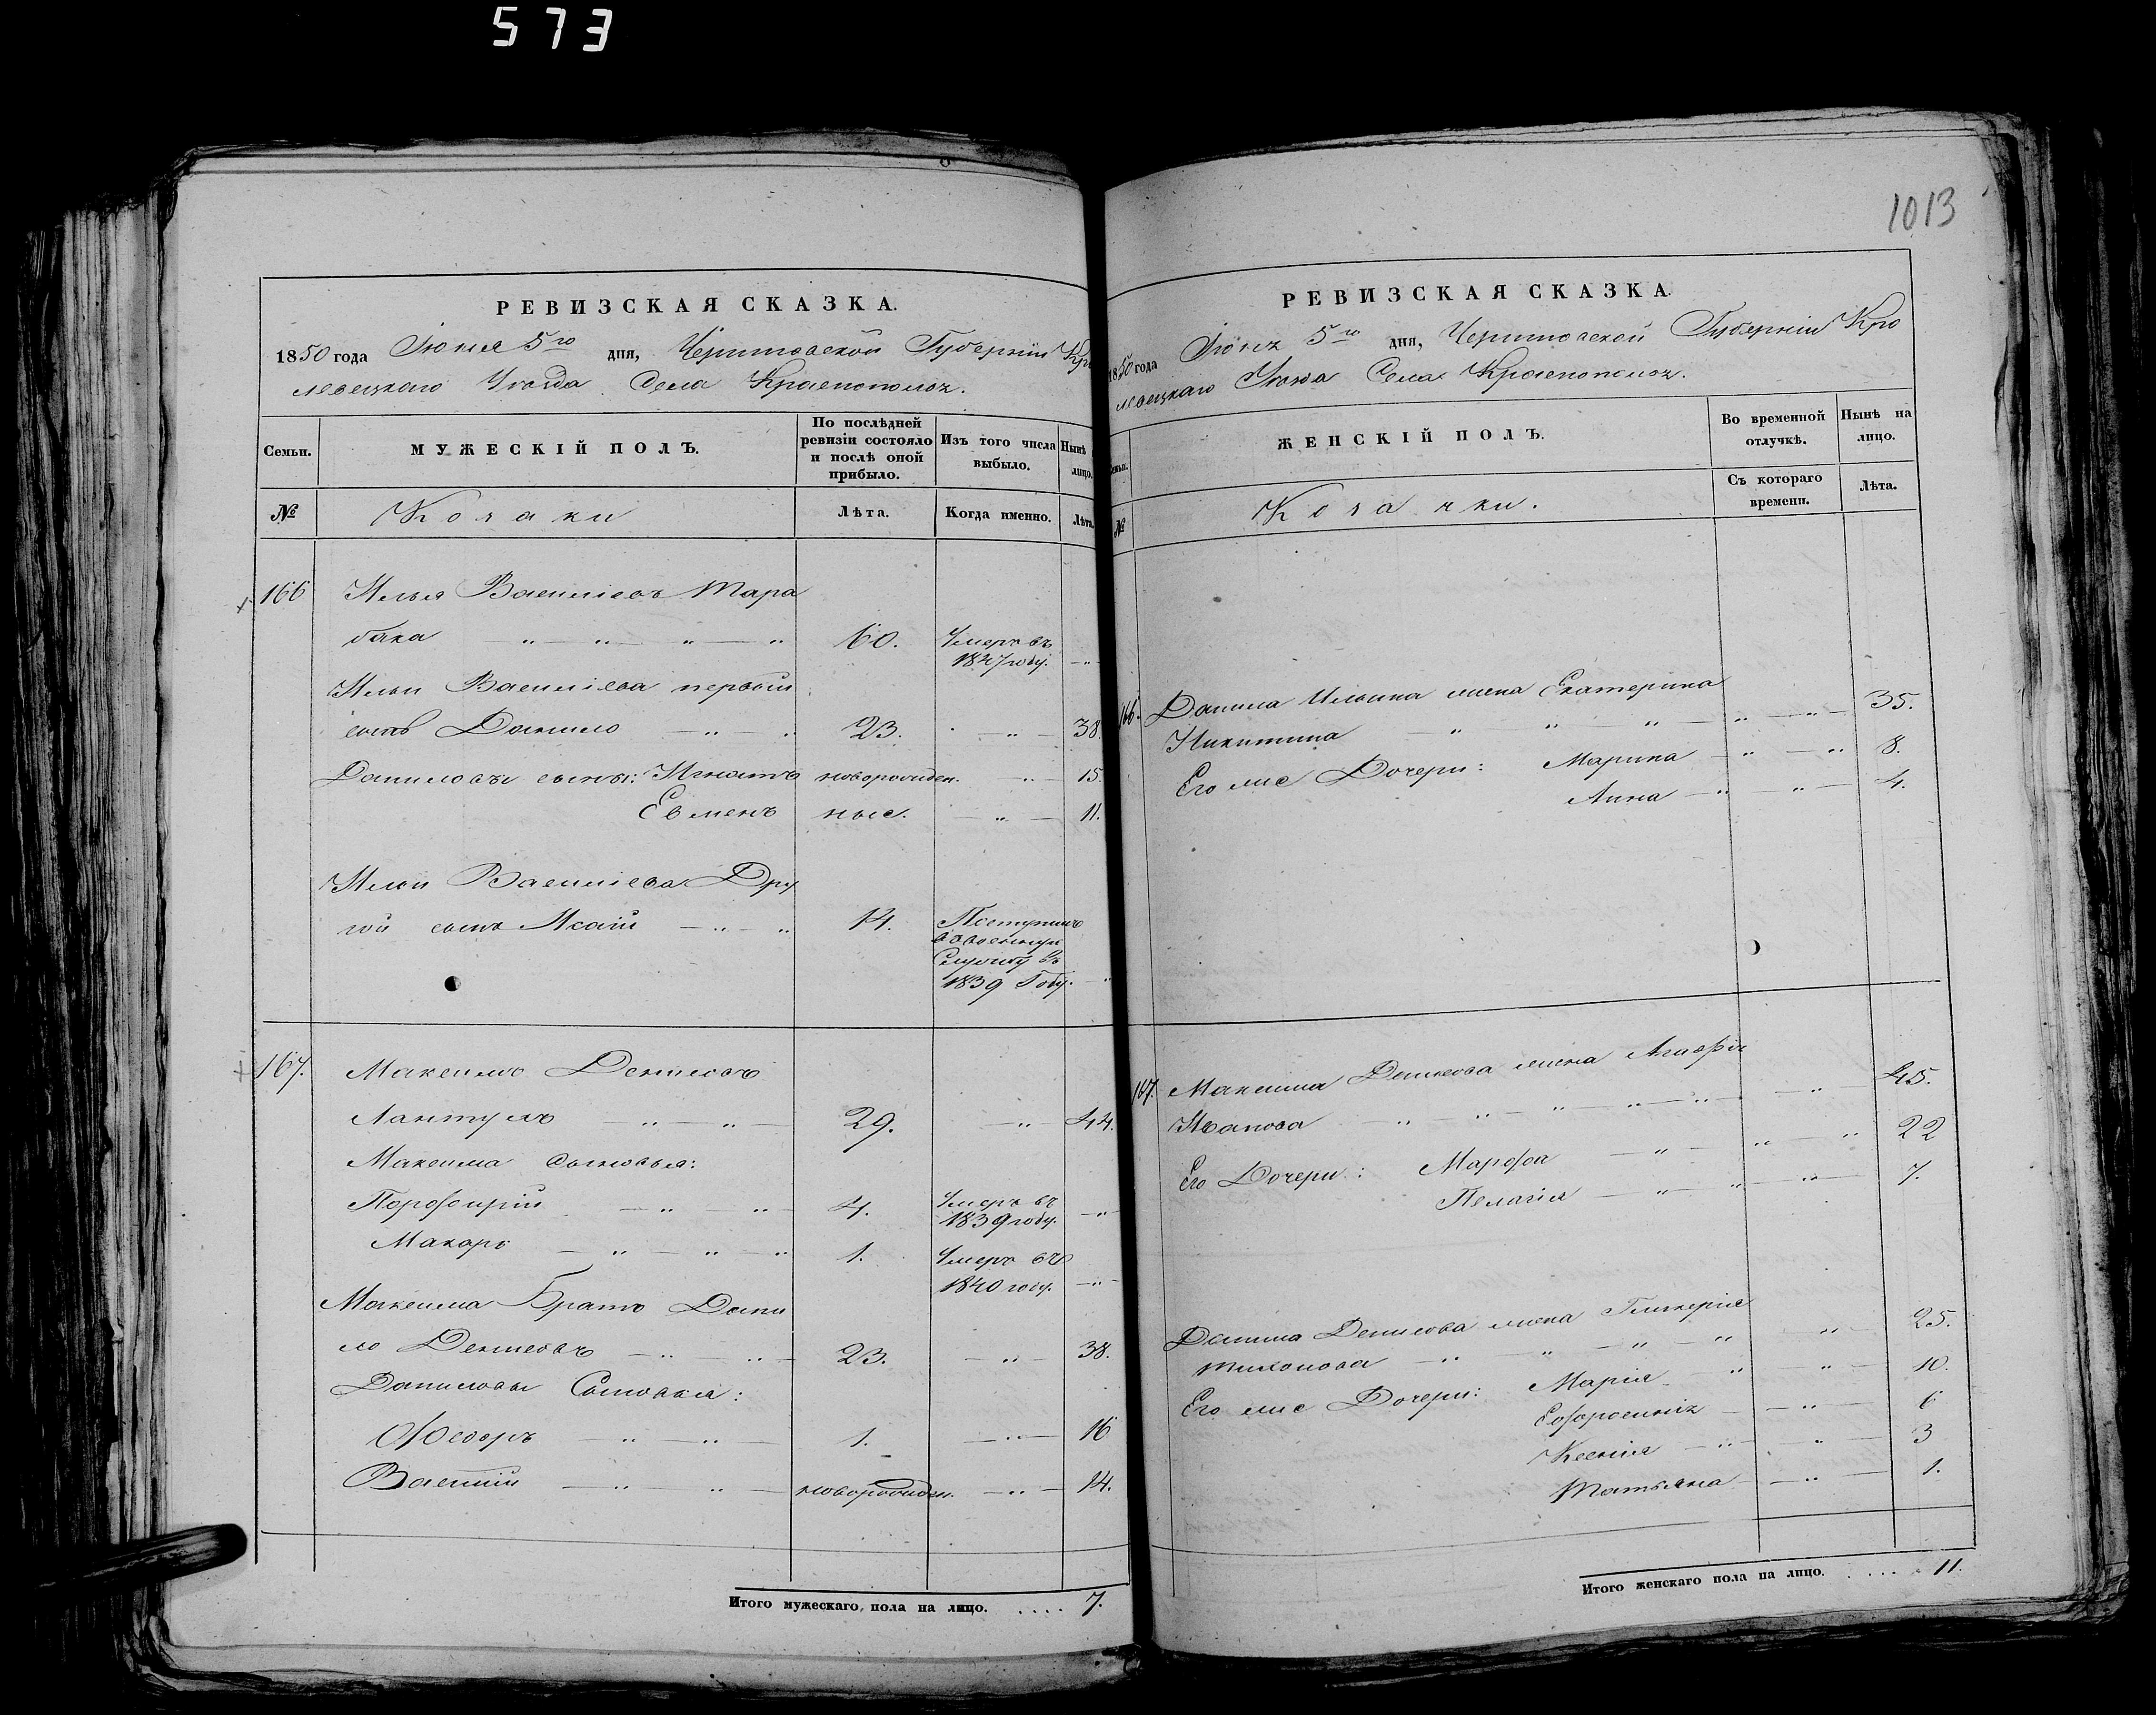 573
РЕВИЗСКАЯ СКАЗКА.
1850 года Іюня 5го дня, Черниговской Губерніи Кро
левецкаго Уѣзда Села Краснополья.
Семьи.
МУЖЕСКІЙ ПОЛЪ.
По послѣдней ревизіи состояло и послѣ оной прибыло.
Изъ того числа выбыло.
Нынѣ лицо.
№
Козаки
Лѣта.
Когда именно.
Лѣта.
166 Илья Васильевъ Тара
бака 60. Умеръ въ 1847 году.
Ильи Васильева первый
сынъ Данило 23. 38.
Даниловы сыны: Игнатъ новорожден. 15
Евменъ ные. 11.
Ильи Васильева Дру
гой сынъ Исай 14. Поступилъ
в военную
Службу въ
1839 Году.
167. Максимъ Денисовъ
Лантухъ 29. 44.
Максима сыновья:
Порфирій 4. Умеръ въ 1839 году.
Макаръ 1. Умеръ въ
1840 году.
Максима Братъ Дани
ло Денисовъ 23. 38.
Даниловы Сыновья:
Ѳедоръ 1. 16
Василій новорожден. 14.
Итого мужескаго пола на лицо. .... 7.
1013
РЕВИЗСКАЯ СКАЗКА.
1850 года Іюня 5го дня, Черниговской Губерніи Кро
левецкаго Уѣзда Села Краснополья.
Семьи.
ЖЕНСКІЙ ПОЛЪ.
Во временной отлучкѣ.
Нынѣ на лицо.
№
Козачки.
Съ котораго времени.
Лѣта.
166. Данила Ильина жена Екатерина
Никитина 35.
Его же Дочери: Марина 8.
Анна 4.
167. Максима Денисова жена
Иванова 45.
Его Дочери: Марфа 22
Пелагія 7.
Данила Денисова жена Гликерія
Тихонова 25.
Его же Дочери: Марія 10.
Ефросинія 6
Ксенія 3
Татьяна 1.
Итого женскаго пола на лицо. ..... 11.